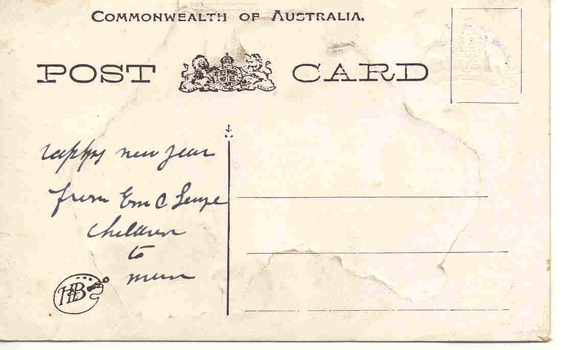 COMMONWEALTH OF AUSTRALIA.
POST CARD
Happy new year
from Em C
children
to
mum
HB